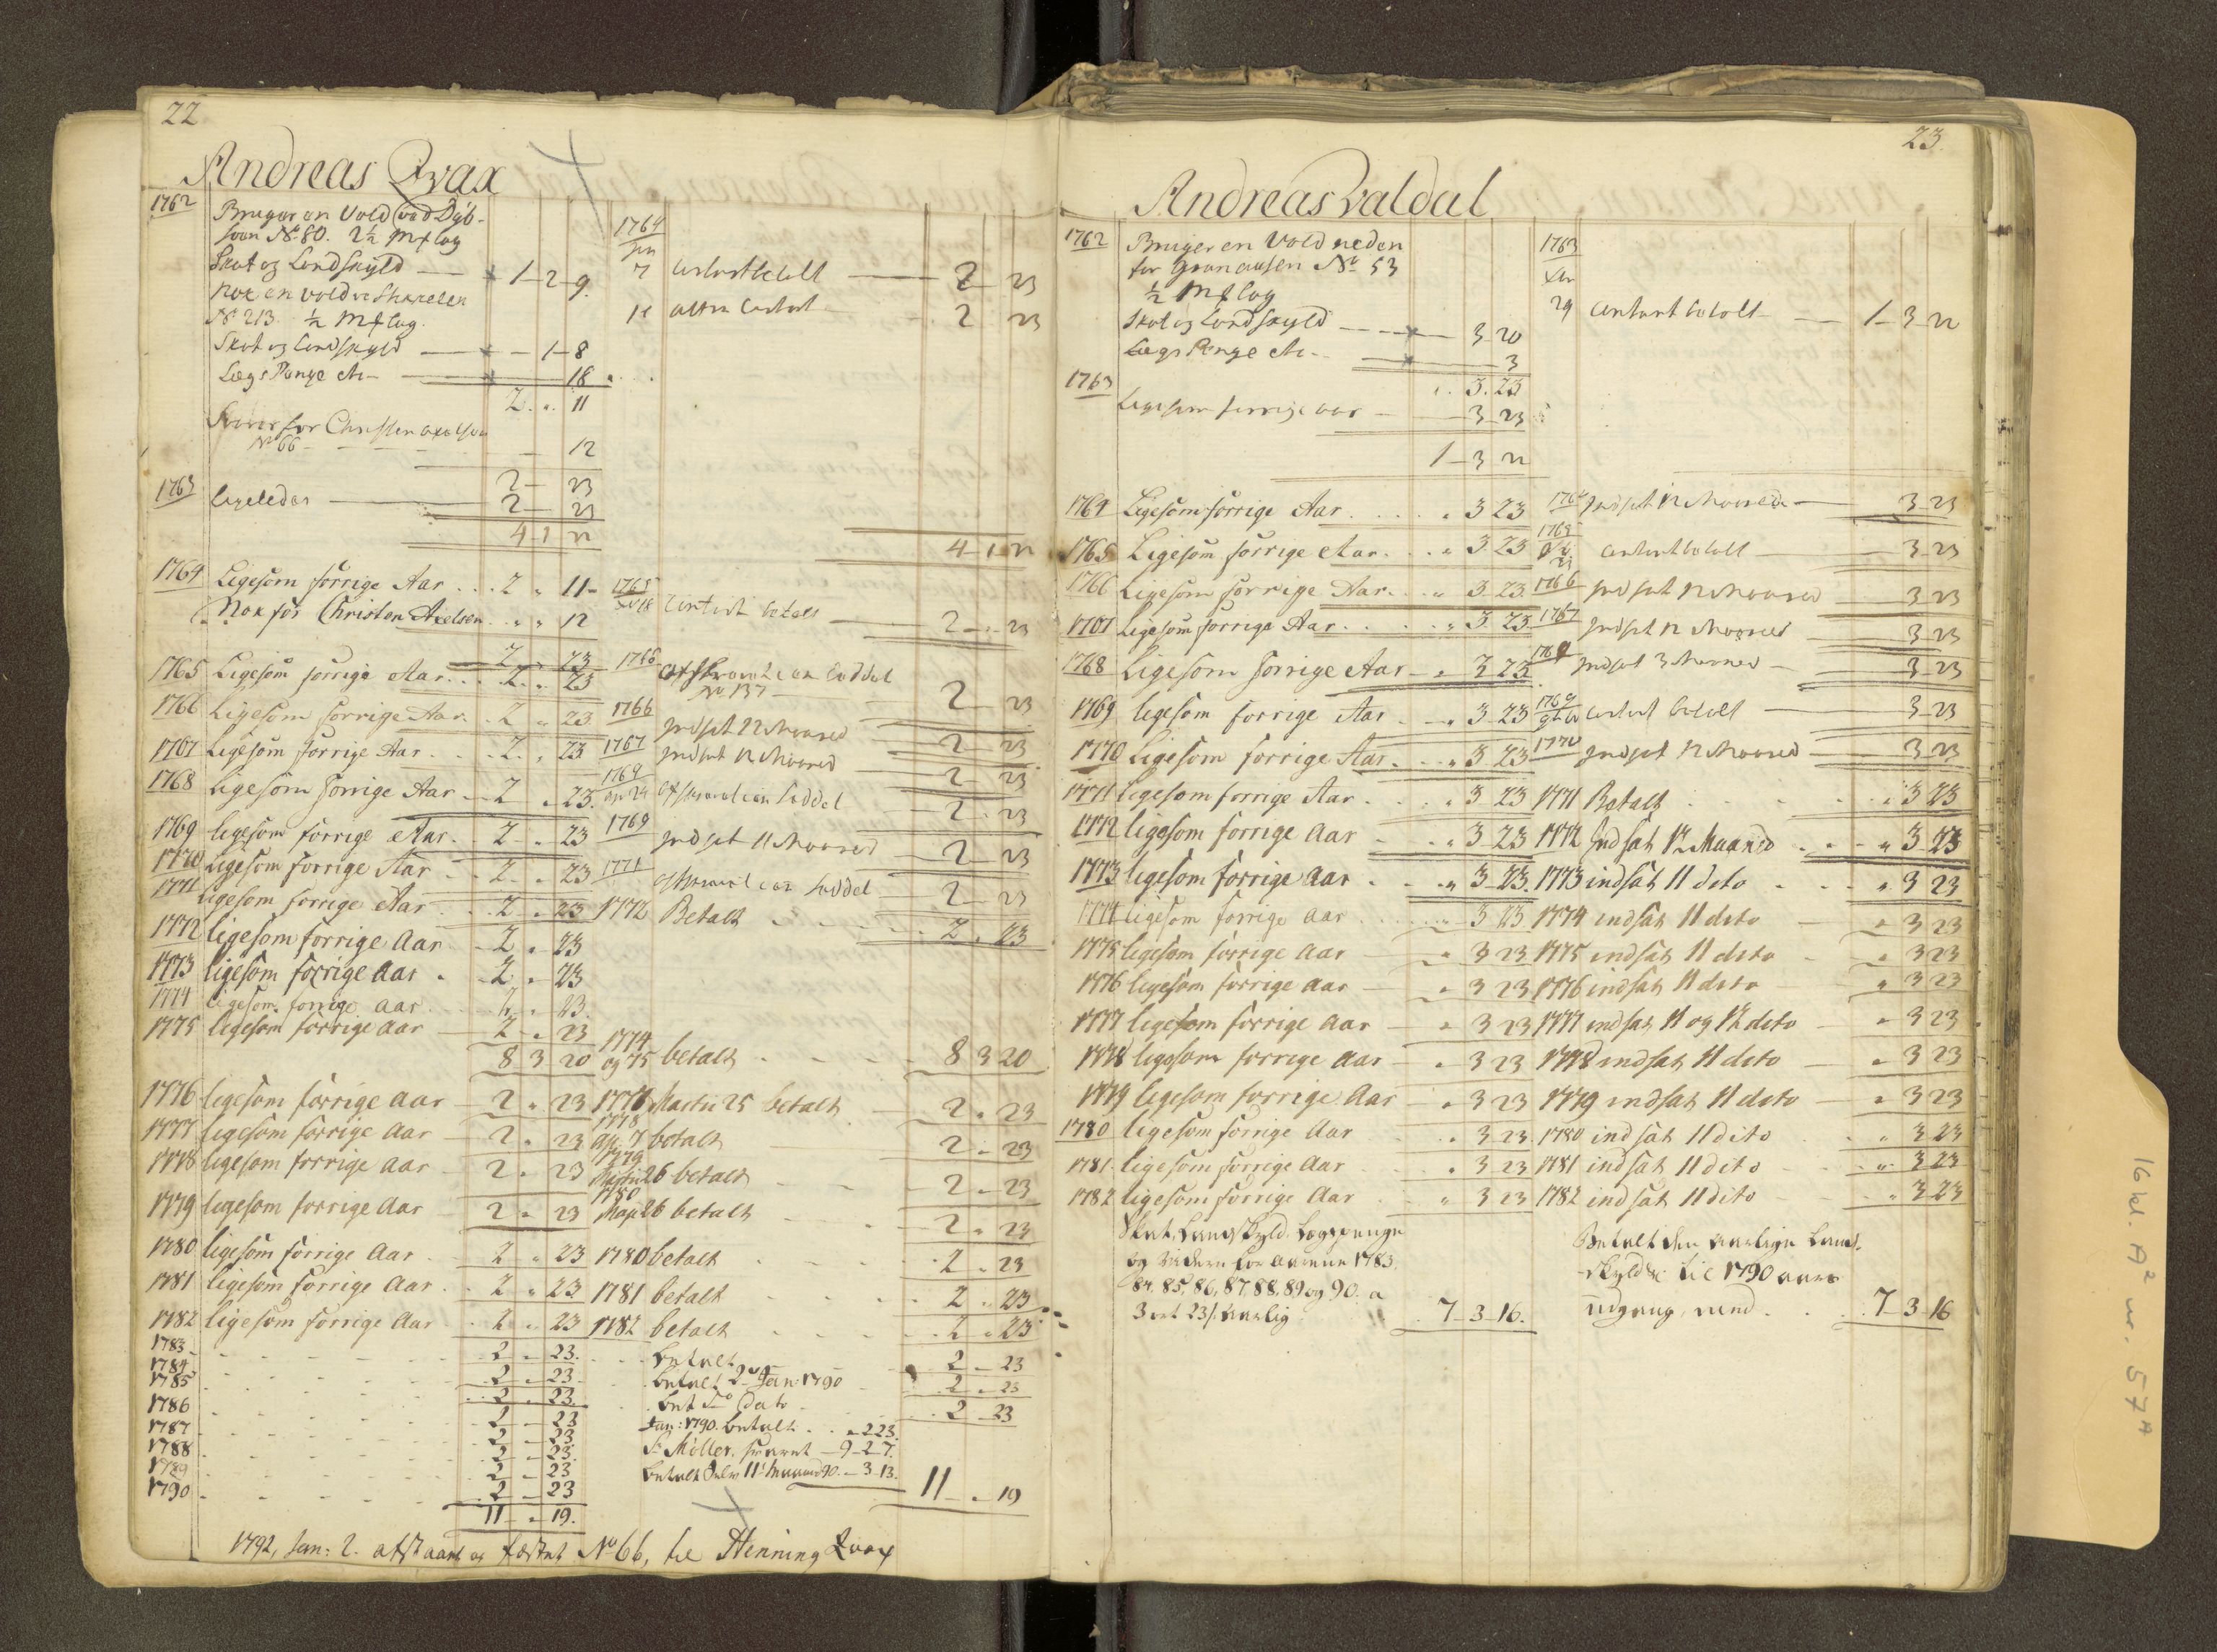 22
Andreas Qvax
1762
Bruger en Vold ved Dyb-
No 80. 2½ mæ lag
Skat og Landskyld — 1-2-9.
Nok en vold
No 213. ½ mæ lag.
Skat og Landskyld — 1-8
Lægs Penge etc — 18
2 " 11
Svarer for Christen Axelsen
No 66 — 12
2 — 23
1763 Ligeledes — 2 — 23
4-1-22
1764 Ligesom forrige Aar . . . 2 " 11-
Nok for Christen Axelsen . " " 12
2 " 23
1765 Ligesom forrige Aar . . 2 " 23
1766 Ligesom forrige Aar . 2 " 23
1767 Ligesom forrige Aar . . 2 " 23
1768 Ligesom forrige Aar — 2 " 23.
1769 ligesom forrige Aar . 2 " 23
1770 Ligesom forrige Aar - 2 " 23
1771 ligesom forrige Aar . 2 " 23
1772 ligesom forrige Aar - 2 " 23
1773 ligesom forrige Aar . 2 " 23
1774 ligesom forrige aar . 2 " 23.
1775 ligesom forrige aar — 2 " 23
8 3 20
1776 ligesom forrige aar — 2 " 23
1777 ligesom forrige Aar — 2 " 23
1778 ligesom forrige aar — 2 " 23
1779 ligesom forrige aar — 2 " 23
1780 ligesom forrige Aar . 2 " 23
1781 ligesom forrige Aar . 2 " 23
1782 ligesom forrige Aar . 2 " 23
1783 - - - 2 " 23.
1784 - - - 2 " 23
1785 - - - 2 " 23.
1786 - - - 2 - 23
1787 - - - 2 - 23
1788 - - - 2 - 23.
1789 - - - 2 - 23
1790 - - - 2 - 23
11 - " 19.
1764
Jan
7 contant betalt — 2 — 23
2 23
4-1-22
1765
18 Contant betalt — 2 — " 23
1766 Afskrevet i en Seddel
No 137 — 2 — 23
1766 Indsat 12 Maaned — 2 — 23
1767 Indsat 12 Maaned — 2 — 23
1769
Apr 24 afskrevet i en Seddel 2 - 23
1769 Indsat 11 Maaned — 2 — 23
1771 afskrevet i en Seddel 2 — 23
1772 Betalt . . . 2 " 23
1774
og 75 betalt . . . 8 3 20
1777 Martii 25 betalt - 2 " 23
1778
Apr. 7 betalt - 2 " 23
1779
Martii 26 betalt - 2 " 23
1780
Maji 26 betalt - 2 " 23
1780 betalt . . . 2 " 23
1781 betalt . . . 2 " 23
1782 betalt . . . 2 " 23
betalt - 2 - 23
betalt 2 Jan 1790 2 - 23
bet dato - 2 - 23
Jan: 1790. betalt . . " 2 23.
S. Møller, svaret - 9-2-7.
betalt 11te Maaned 90. - 3-13.
11 - " 19
1792, Jan: 2. afstaaet og fæstet No 66, til Henning Qvax
23.
Andreas Valdal
1762 Bruger en Vold neden
for No 53
½ mæ lag
Skat og Landskyld — 3-20
Lægs Penge etc - — 3
" . 3. 23
1763
Ligesom forrige aar — 3-23
1-3-22
1764 Ligesom forrige Aar . . . . " 3 23
1765 Ligesom forrige Aar . . " 3 23
1766 Ligesom forrige Aar . . " 3 23
1767 Ligesom forrige Aar . . . " 3 23
1768 Ligesom forrige Aar - " 3 23
1769 ligesom forrige Aar . - " 3-23
1770 Ligesom forrige Aar . - " 3 23
1771 ligesom forrige Aar . . . " 3 23
1772 ligesom forrige Aar - " 3 23
1773 ligesom forrige aar . . " 3-23.
1774 ligesom forrige aar . . " 3 23
1775 ligesom forrige aar — " 3 23
1776 ligesom forrige aar — " 3 23
1777 ligesom forrige aar — " 3 23
1778 ligesom forrige aar — " 3 23
1779 ligesom forrige aar — " 3 23
1780 ligesom forrige Aar . " 3 23.
1781 ligesom forrige aar . " 3 23
1782 ligesom forrige Aar . " 3 23
Skat, Landskyld, Lægspenge
og videre for aarene 1783.
84. 85. 86. 87. 88. 89 og 90. a
3 ort 23 s. aarlig . 7-3-16.
1763
Xbr
29 contant betalt — 1-3-22
1764 Indsat 12 Maaned — 3-23
1765
contant betalt — 3-23
1766 Indsat 12 Maaned — 3-23
1767 Indsat 12 Maaned — 3-23
1768 Indsat 3 Maaned — 3-23
1769
contant betalt — 3-23
1770 Indsat 12 Maaned — 3-23
1771 Betalt . . . " 3 23
1772 Indsat 12 Maaned . - " 3-23
1773 indsat 11 deto . - " 3 23
1774 indsat 11 deto - " 3 23
1775 indsat 11 deto - " 3 23
1776 indsat 11 deto — " 3 23
1777 indsat 11 og 12 deto - " 3 23
1778 indsat 11 deto — " 3 23
1779 indsat 11 deto — " 3 23
1780 indsat 11 dito . " 3 23
1781 indsat 11 dito . - " 3 23
1782 indsat 11 dito . " 3 23
Betalt den aarlige Land-
skyld &c til 1790 aars
udgang, med . . 7-3-16
16 kl. A² nr. 57ᴬ